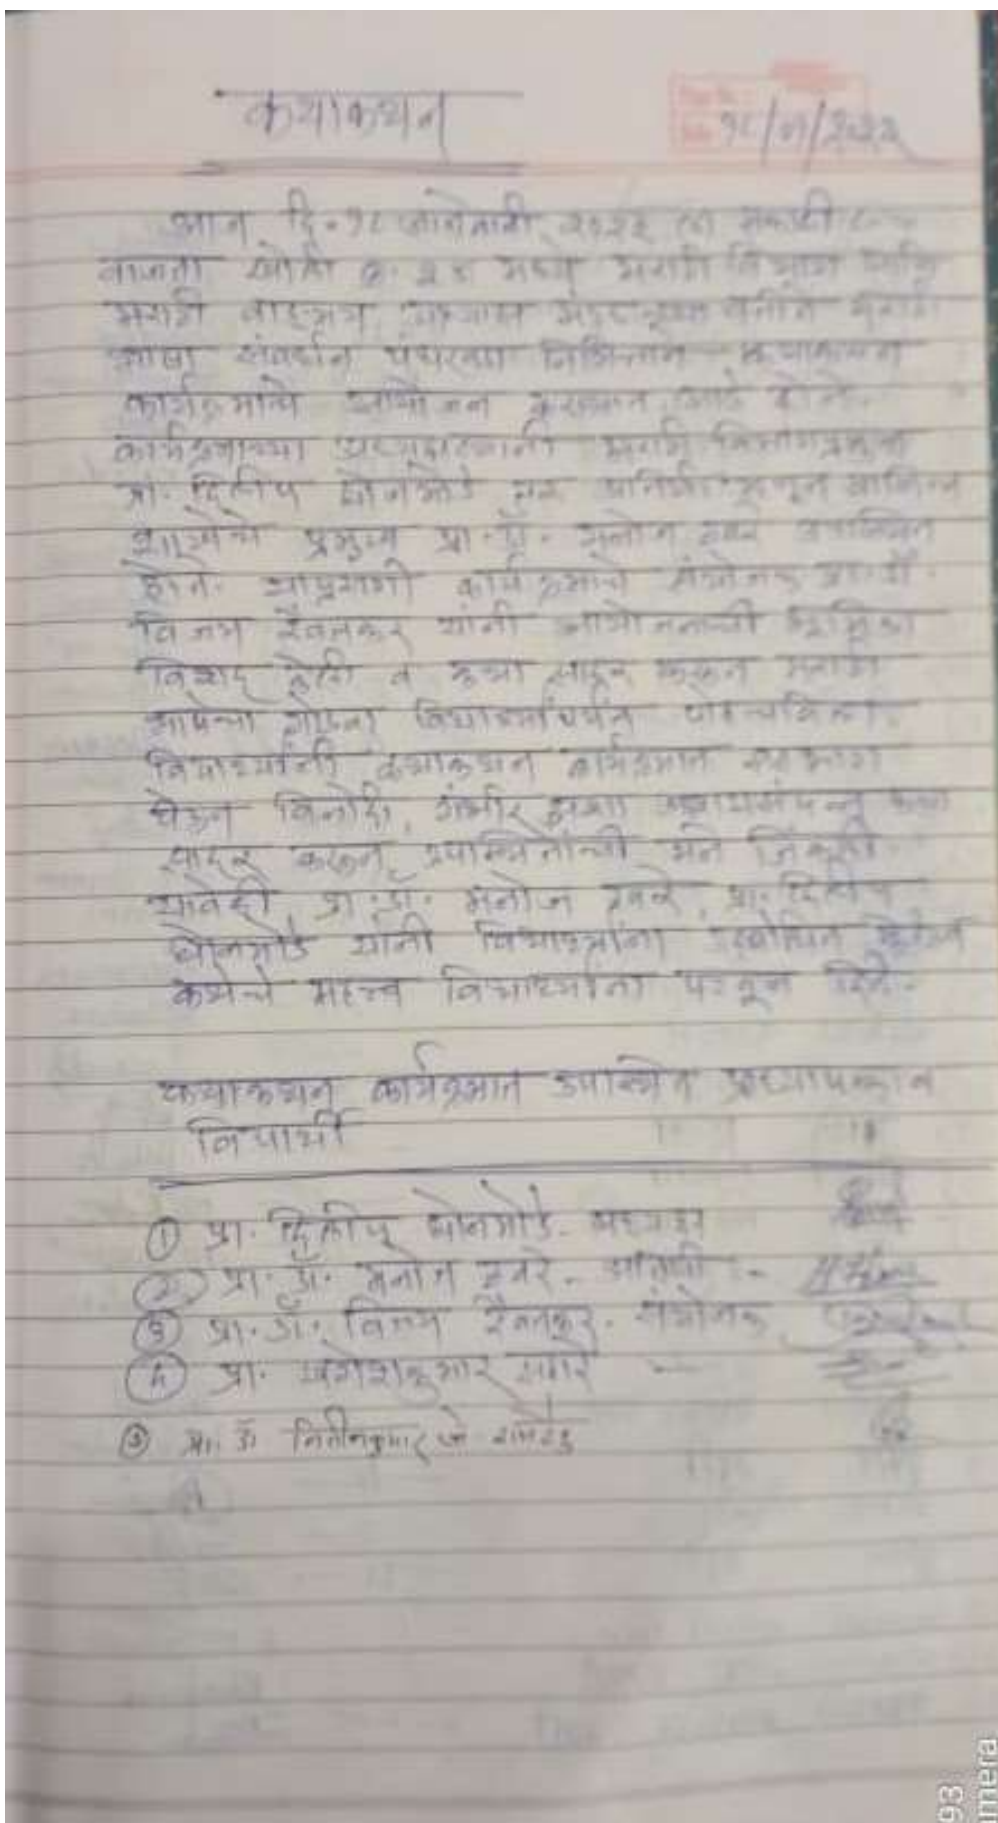 कथाकथन
१८/०१/२०२२
आज दि. १८ जानेवारी २०२२ ला सकाळी ८
वाजता खोली क्र. २४ मध्ये मराठी विभाग आणि
मराठी वाङ्मय अभ्यास मंडळाच्या वतीने मराठी
भाषा संवर्धन पंधरवडा निमित्ताने कथाकथन
कार्यक्रमाचे आयोजन करण्यात आले होते.
कार्यक्रमाच्या अध्यक्षस्थानी मराठी विभागप्रमुख
प्रा. दिलीप घोनमोडे तर अतिथी म्हणून वाणिज्य
शाखेचे प्रमुख प्रा. डॉ. मनोज उपस्थित
होते. याप्रसंगी कार्यक्रमाचे संयोजक प्रा. डॉ.
विजय रैवतकर यांनी आयोजनाची भूमिका
विशद केली व कथा सादर करून मराठी
भाषेचा गोडवा विद्यार्थ्यांपर्यंत पोहचविला.
विद्यार्थ्यांनी कथाकथन कार्यक्रमात सहभाग
घेऊन विनोदी, गंभीर अशा कथा
सादर करून उपस्थितांची मने जिंकली.
यावेळी प्रा. डॉ. मनोज प्रा. दिलीप
घोनमोडे यांनी विद्यार्थ्यांना उद्बोधित
कथेचे महत्त्व विद्यार्थ्यांना पटवून दिले.
कथाकथन कार्यक्रमात उपस्थित प्राध्यापक व
विद्यार्थी
① प्रा. दिलीप घोनमोडे - अध्यक्ष
② प्रा. डॉ. मनोज - अतिथी -
③ प्रा. डॉ. विजय रैवतकर - संयोजक
④ प्रा.
प्रा. डॉ नितीनकुमार
93
mera